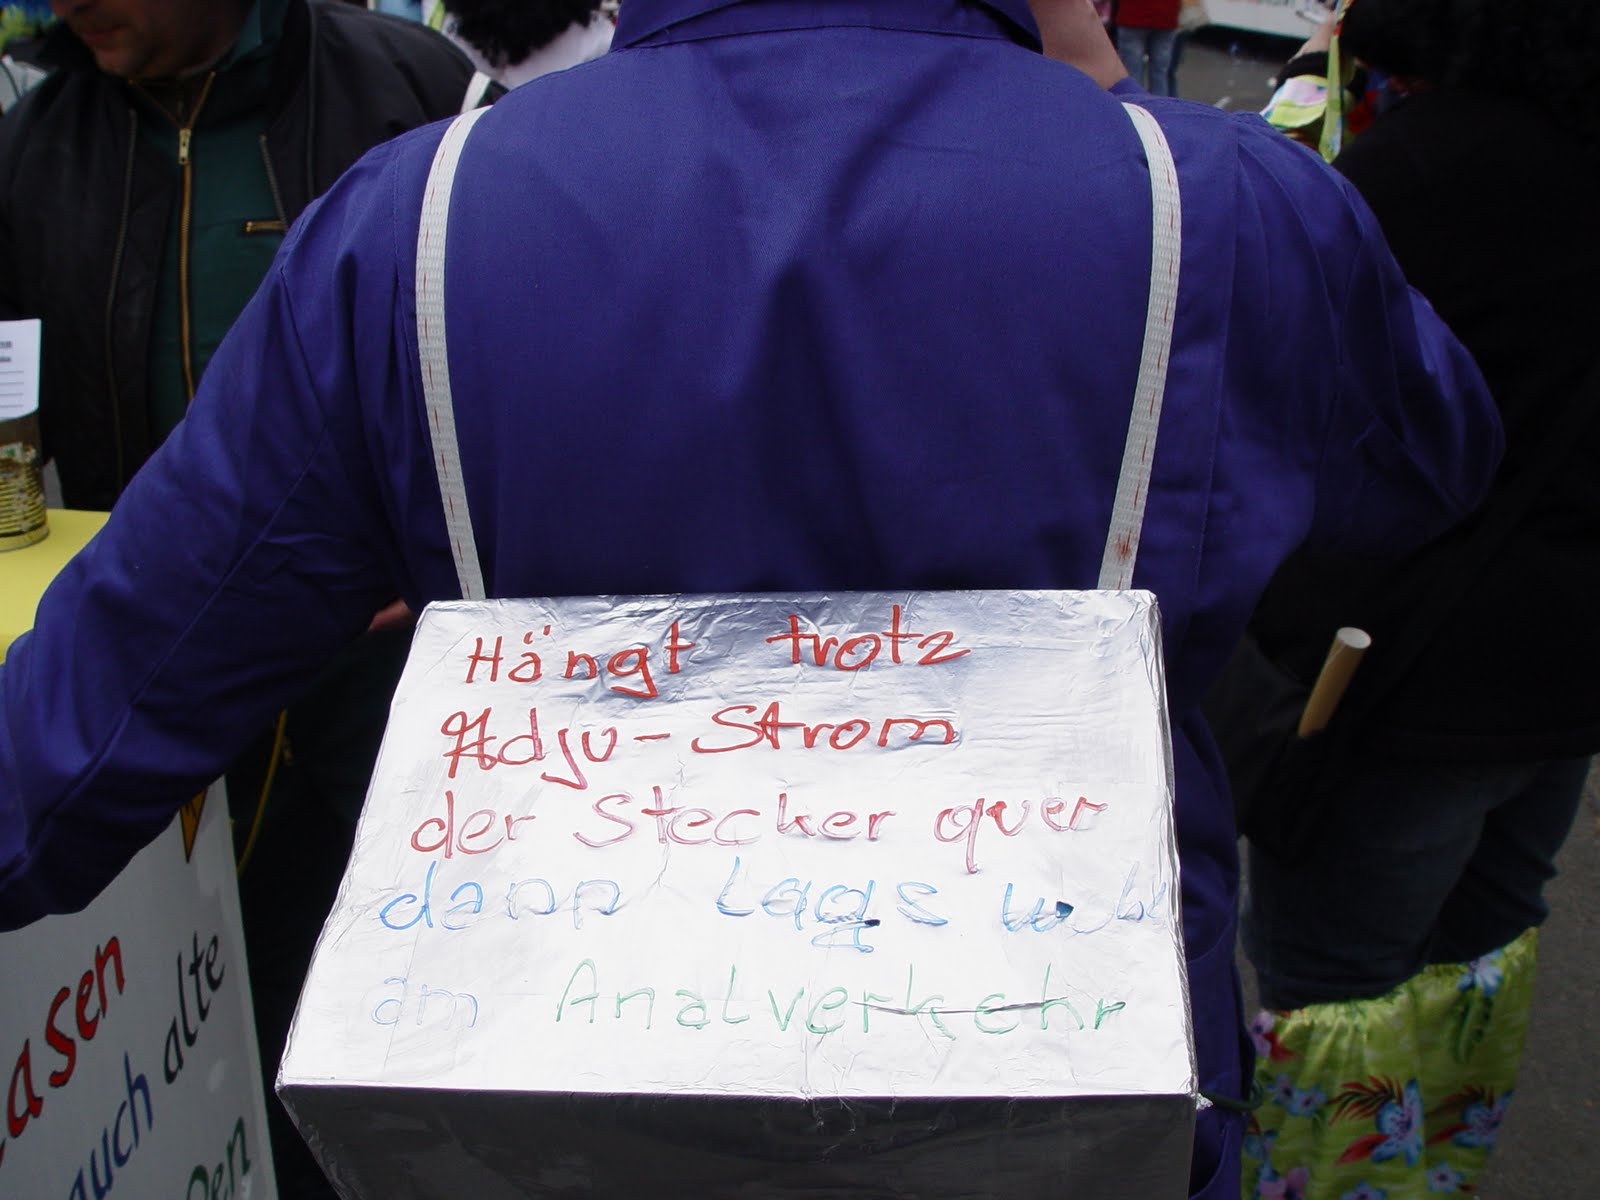 Hängt trotz
Adju-Strom
der Stecker quer
dann Lags
am Analverkehr
asen
auch alte
den